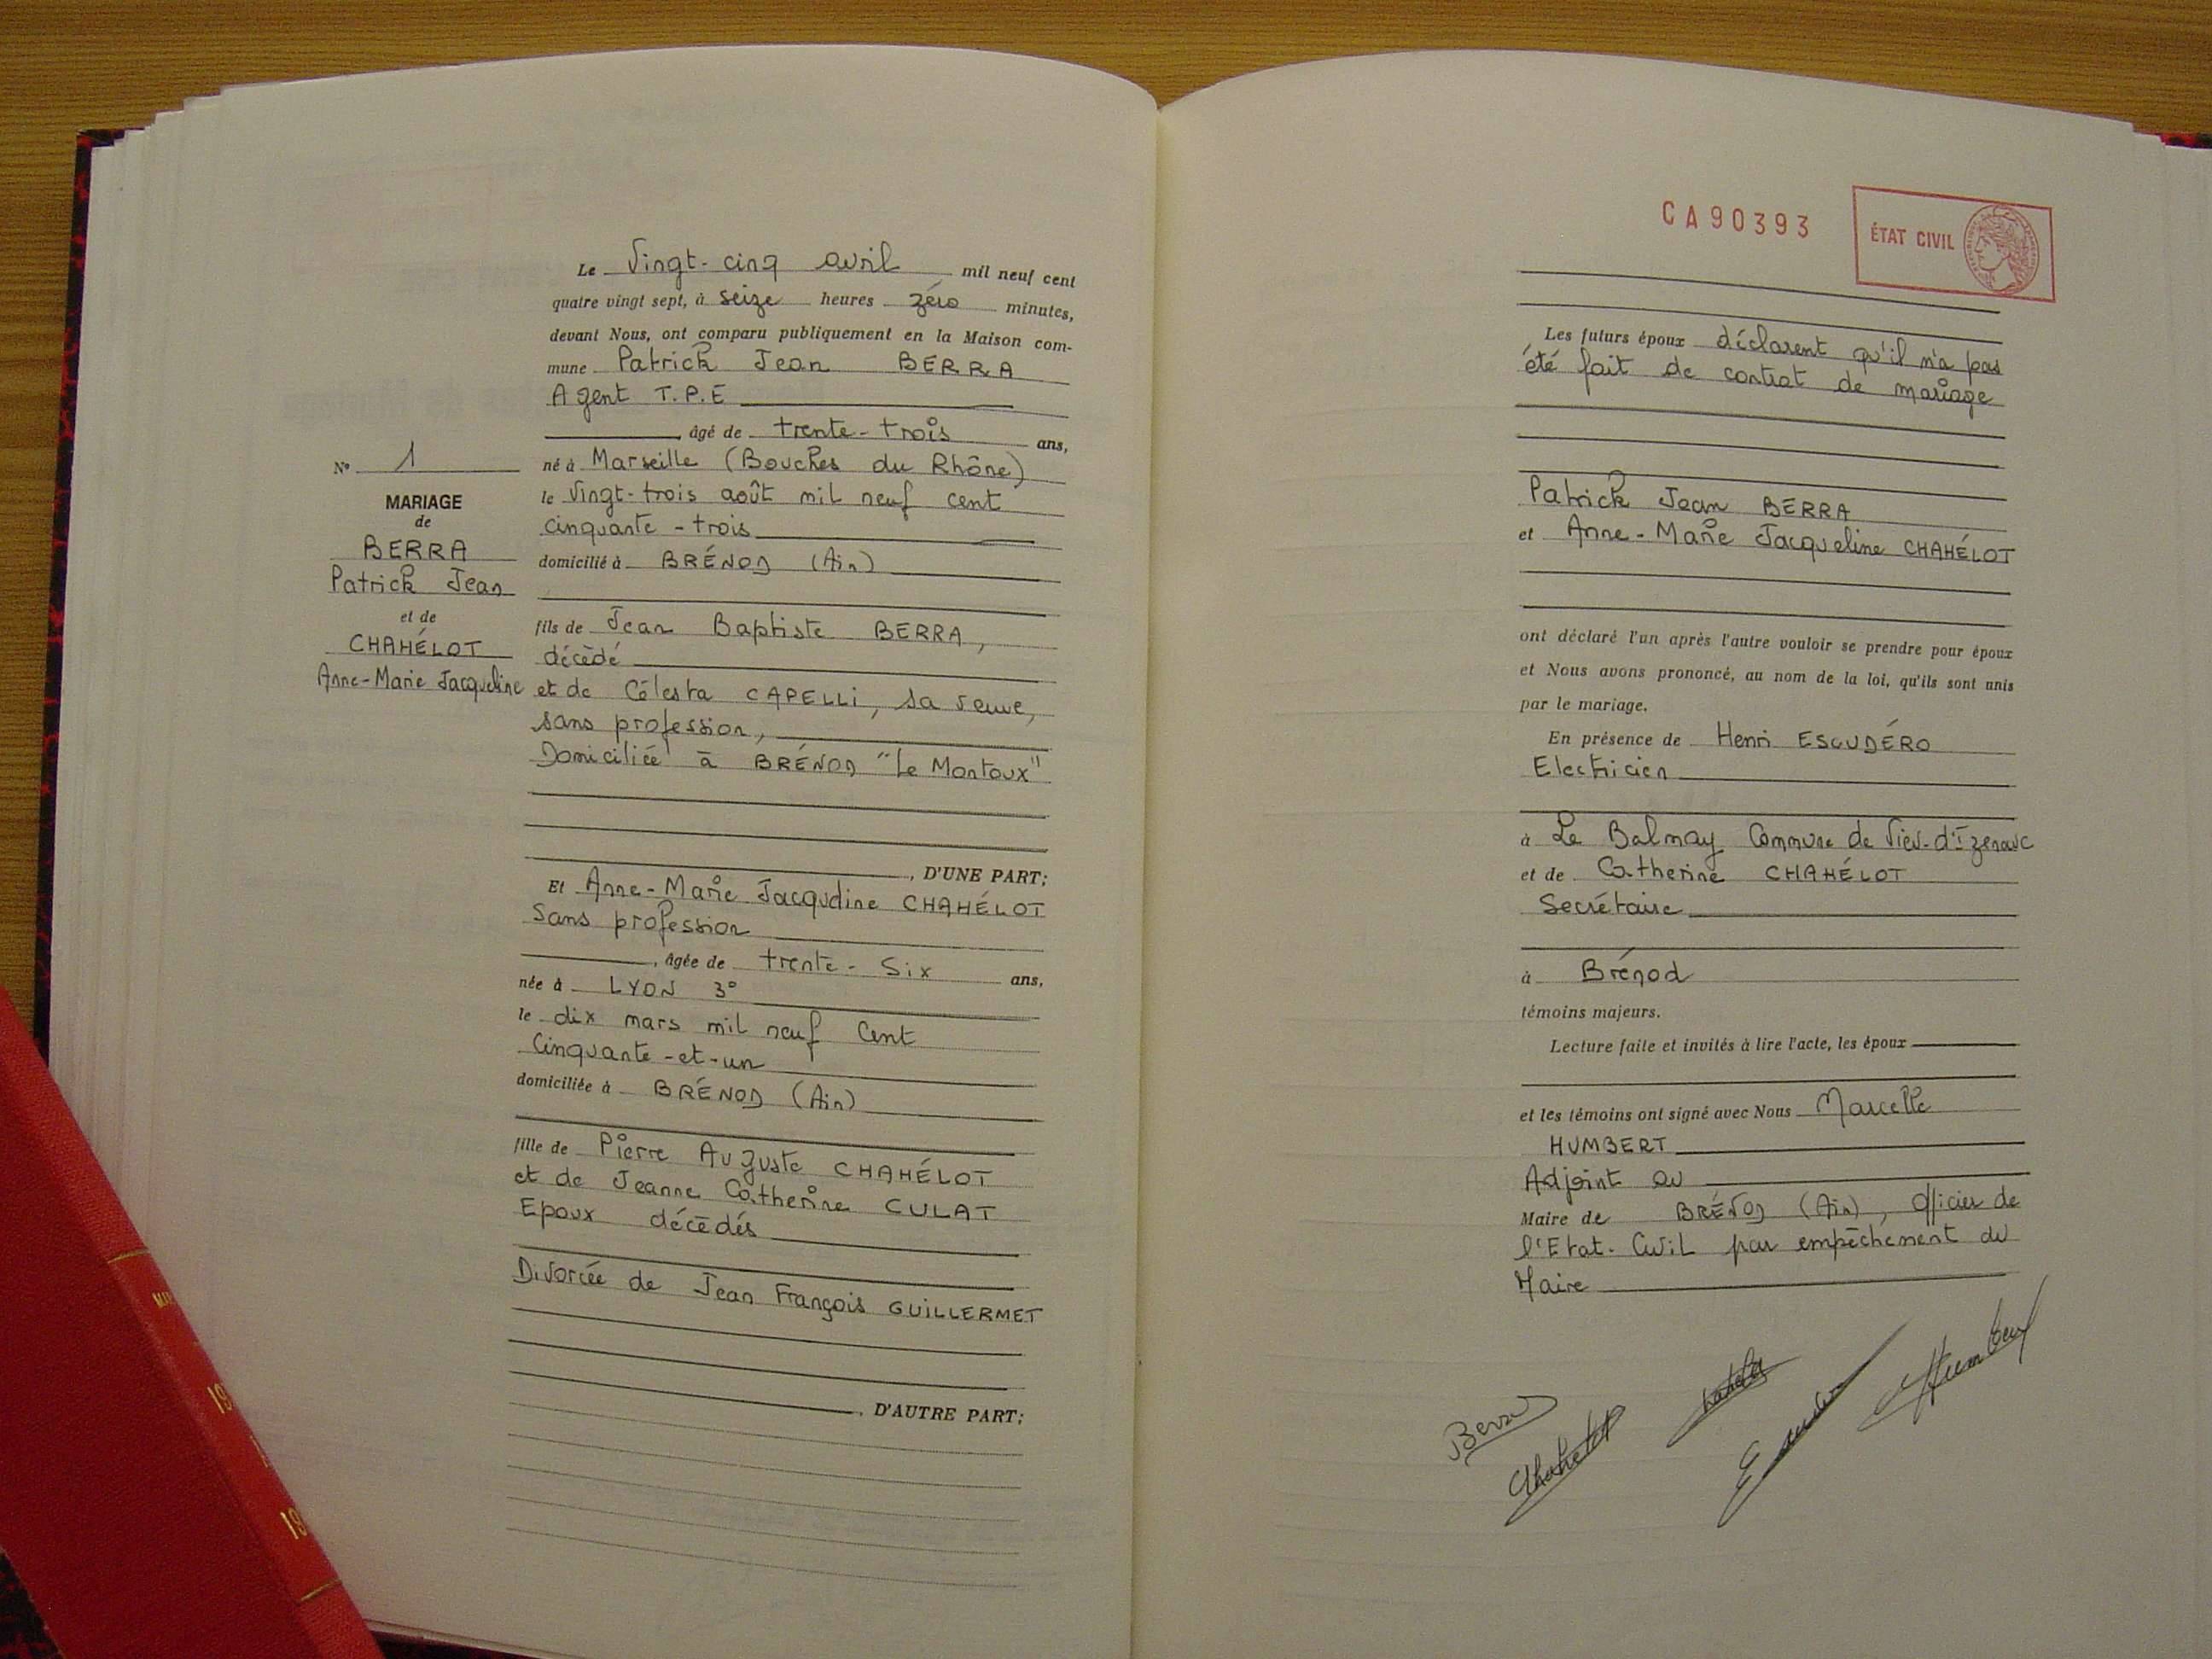 Le Vingt-cinq avril mil neuf cent
quatre vingt sept, à seize heures zéro minutes,
devant Nous, ont comparu publiquement en la Maison com-
mune Patrick Jean BERRA
Agent T.P.E
, âgé de trente-trois ans,
né à Marseille (Bouches du Rhône)
le Vingt-trois août mil neuf cent
cinquante-trois
domicilié à BRÉNOD (Ain)
fils de Jean Baptiste BERRA,
décédé
et de Célesta CAPELLI, sa veuve,
sans profession,
Domiciliée à BRÉNOD "Le Montoux"
, D'UNE PART;
Et Anne-Marie Jacqueline CHAHÉLOT
Sans profession
, âgée de trente-Six ans,
née à LYON 3°
le dix mars mil neuf Cent
Cinquante-et-un
domiciliée à BRÉNOD (Ain)
fille de Pierre Auguste CHAHÉLOT
et de Jeanne Catherine CULAT
Epoux décédés
Divorcée de Jean François GUILLERMET
, D'AUTRE PART;
N° 1
MARIAGE
de
BERRA
Patrick Jean
et de
CHAHÉLOT
Anne-Marie Jacqueline
CA90393
ÉTAT CIVIL
Les futurs époux déclarent qu'il n'a pas
été fait de contrat de mariage
Patrick Jean BERRA
et Anne-Marie Jacqueline CHAHÉLOT
ont déclaré l'un après l'autre vouloir se prendre pour époux
et Nous avons prononcé, au nom de la loi, qu'ils sont unis
par le mariage.
En présence de Henri ESCUDÉRO
Electricien
à Le Balmay Commune de Vieu-d'Izenave
et de Catherine CHAHÉLOT
Secrétaire
à Brénod
témoins majeurs.
Lecture faite et invités à lire l'acte, les époux
et les témoins ont signé avec Nous Marcelle
HUMBERT
Adjoint au
Maire de BRÉNOD (Ain), Officier de
l'Etat-Civil par empêchement du
Maire
Berra
Chahélot
Humbert